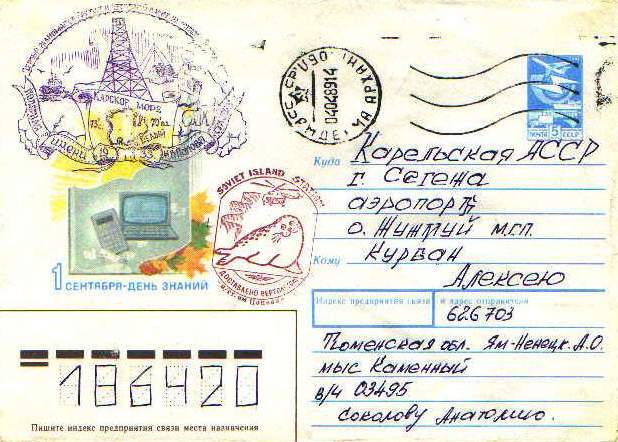 КАРСКОЕ МОРЕ
19 33
04048914
ПОЧТА 5 СССР
SOVIET ISLAND STATION
ДОСТАВЛЕНО
1 СЕНТЯБРЯ-ДЕНЬ ЗНАНИЙ
Куда Карельская АССР
г. Сегежа
аэропорт
о.
Кому Курван
Алексею
Индекс предприятия связи и адрес отправителя
626703
Тюменская обл. Ям-Ненецк. А.О.
мыс Каменный
в/ч 03495
Соколову Анатолию.
186420
Пишите индекс предприятия связи места назначения